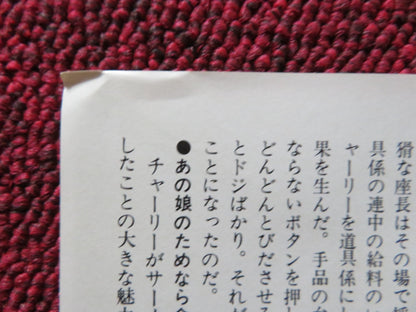 猾な座長はその場で採
具係の連中の給料のい
ャーリーを道具係にし
果を生んだ。手品の台
ならないボタンを押し
どんどんとびださせる
とドジばかり。それが
ことになったのだ。
●あの娘のためなら命
チャーリーがサー
したことの大きな魅力